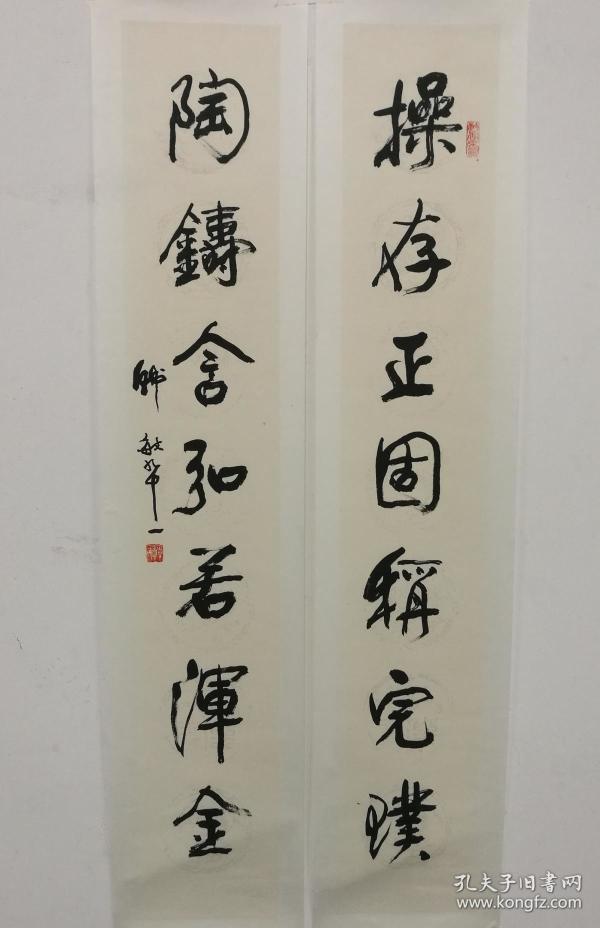 操存正固稱完璞
陶鑄含弘若渾金
孔夫子旧書网
www.kongfz.com